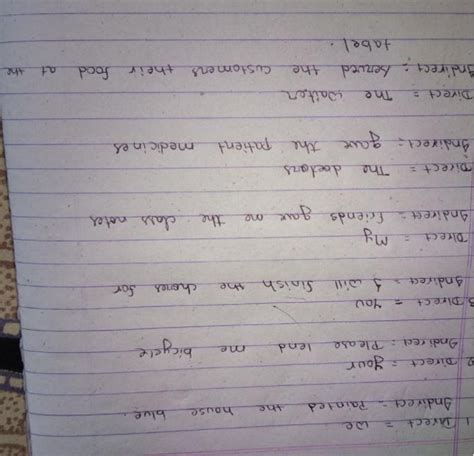 1. Direct = we
Indirect = Painted the house blue.
2. Direct = your
Indirect = Please lend me bicycle
3. Direct = you
Indirect = I will finish the chores for
Direct = My
Indirect = friends gave me the class notes
Direct = The doctors
Indirect = gave the patient medicines
Direct = The waiter
Indirect = served the customers their food at the
tabel.